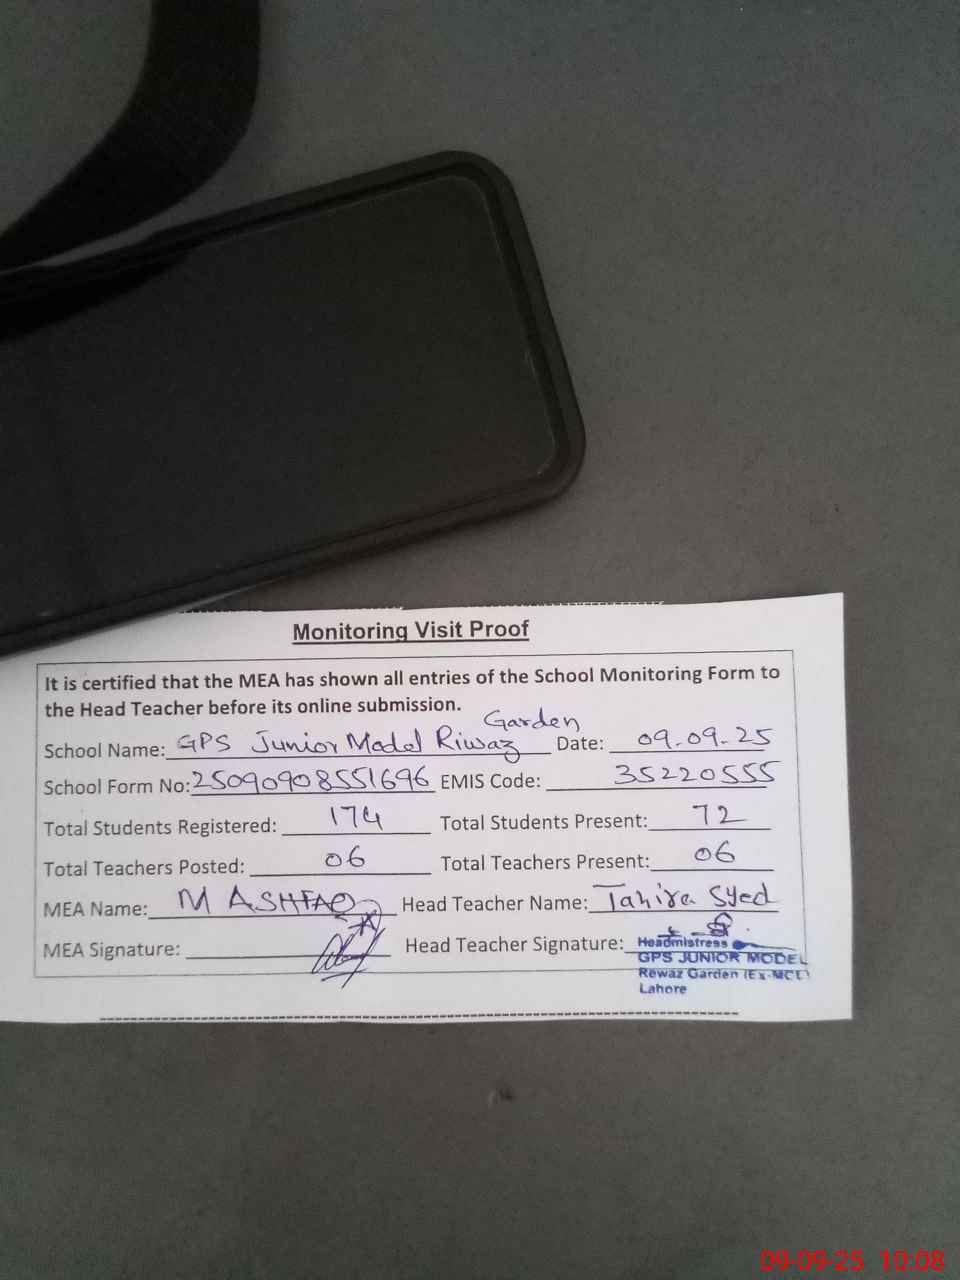 Monitoring Visit Proof
It is certified that the MEA has shown all entries of the School Monitoring Form to
the Head Teacher before its online submission.
School Name: GPS Junior Model Riwaz Garden Date: 09-09-25
School Form No: 25090908551696 EMIS Code: 35220555
Total Students Registered: 174 Total Students Present: 72
Total Teachers Posted: 06 Total Teachers Present: 06
MEA Name: M ASHFAQ Head Teacher Name: Tahira Syed
MEA Signature: Head Teacher Signature:
Headmistress
GPS JUNIOR MODEL
Rewaz Garden (Ex-MCL)
Lahore
09-09-25 10:08